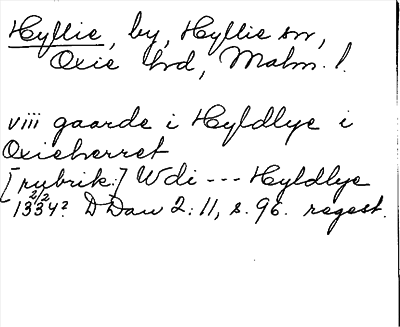 Hyllie, by, Hyllie sn,
Oxie hrd, Malm. l.
viii gaarde i Hyldlye i
Oxieherret
[rubrik:] Wdi --- Hyldlye
2/2
1334? D Dan 2: 11, s. 96. regest.